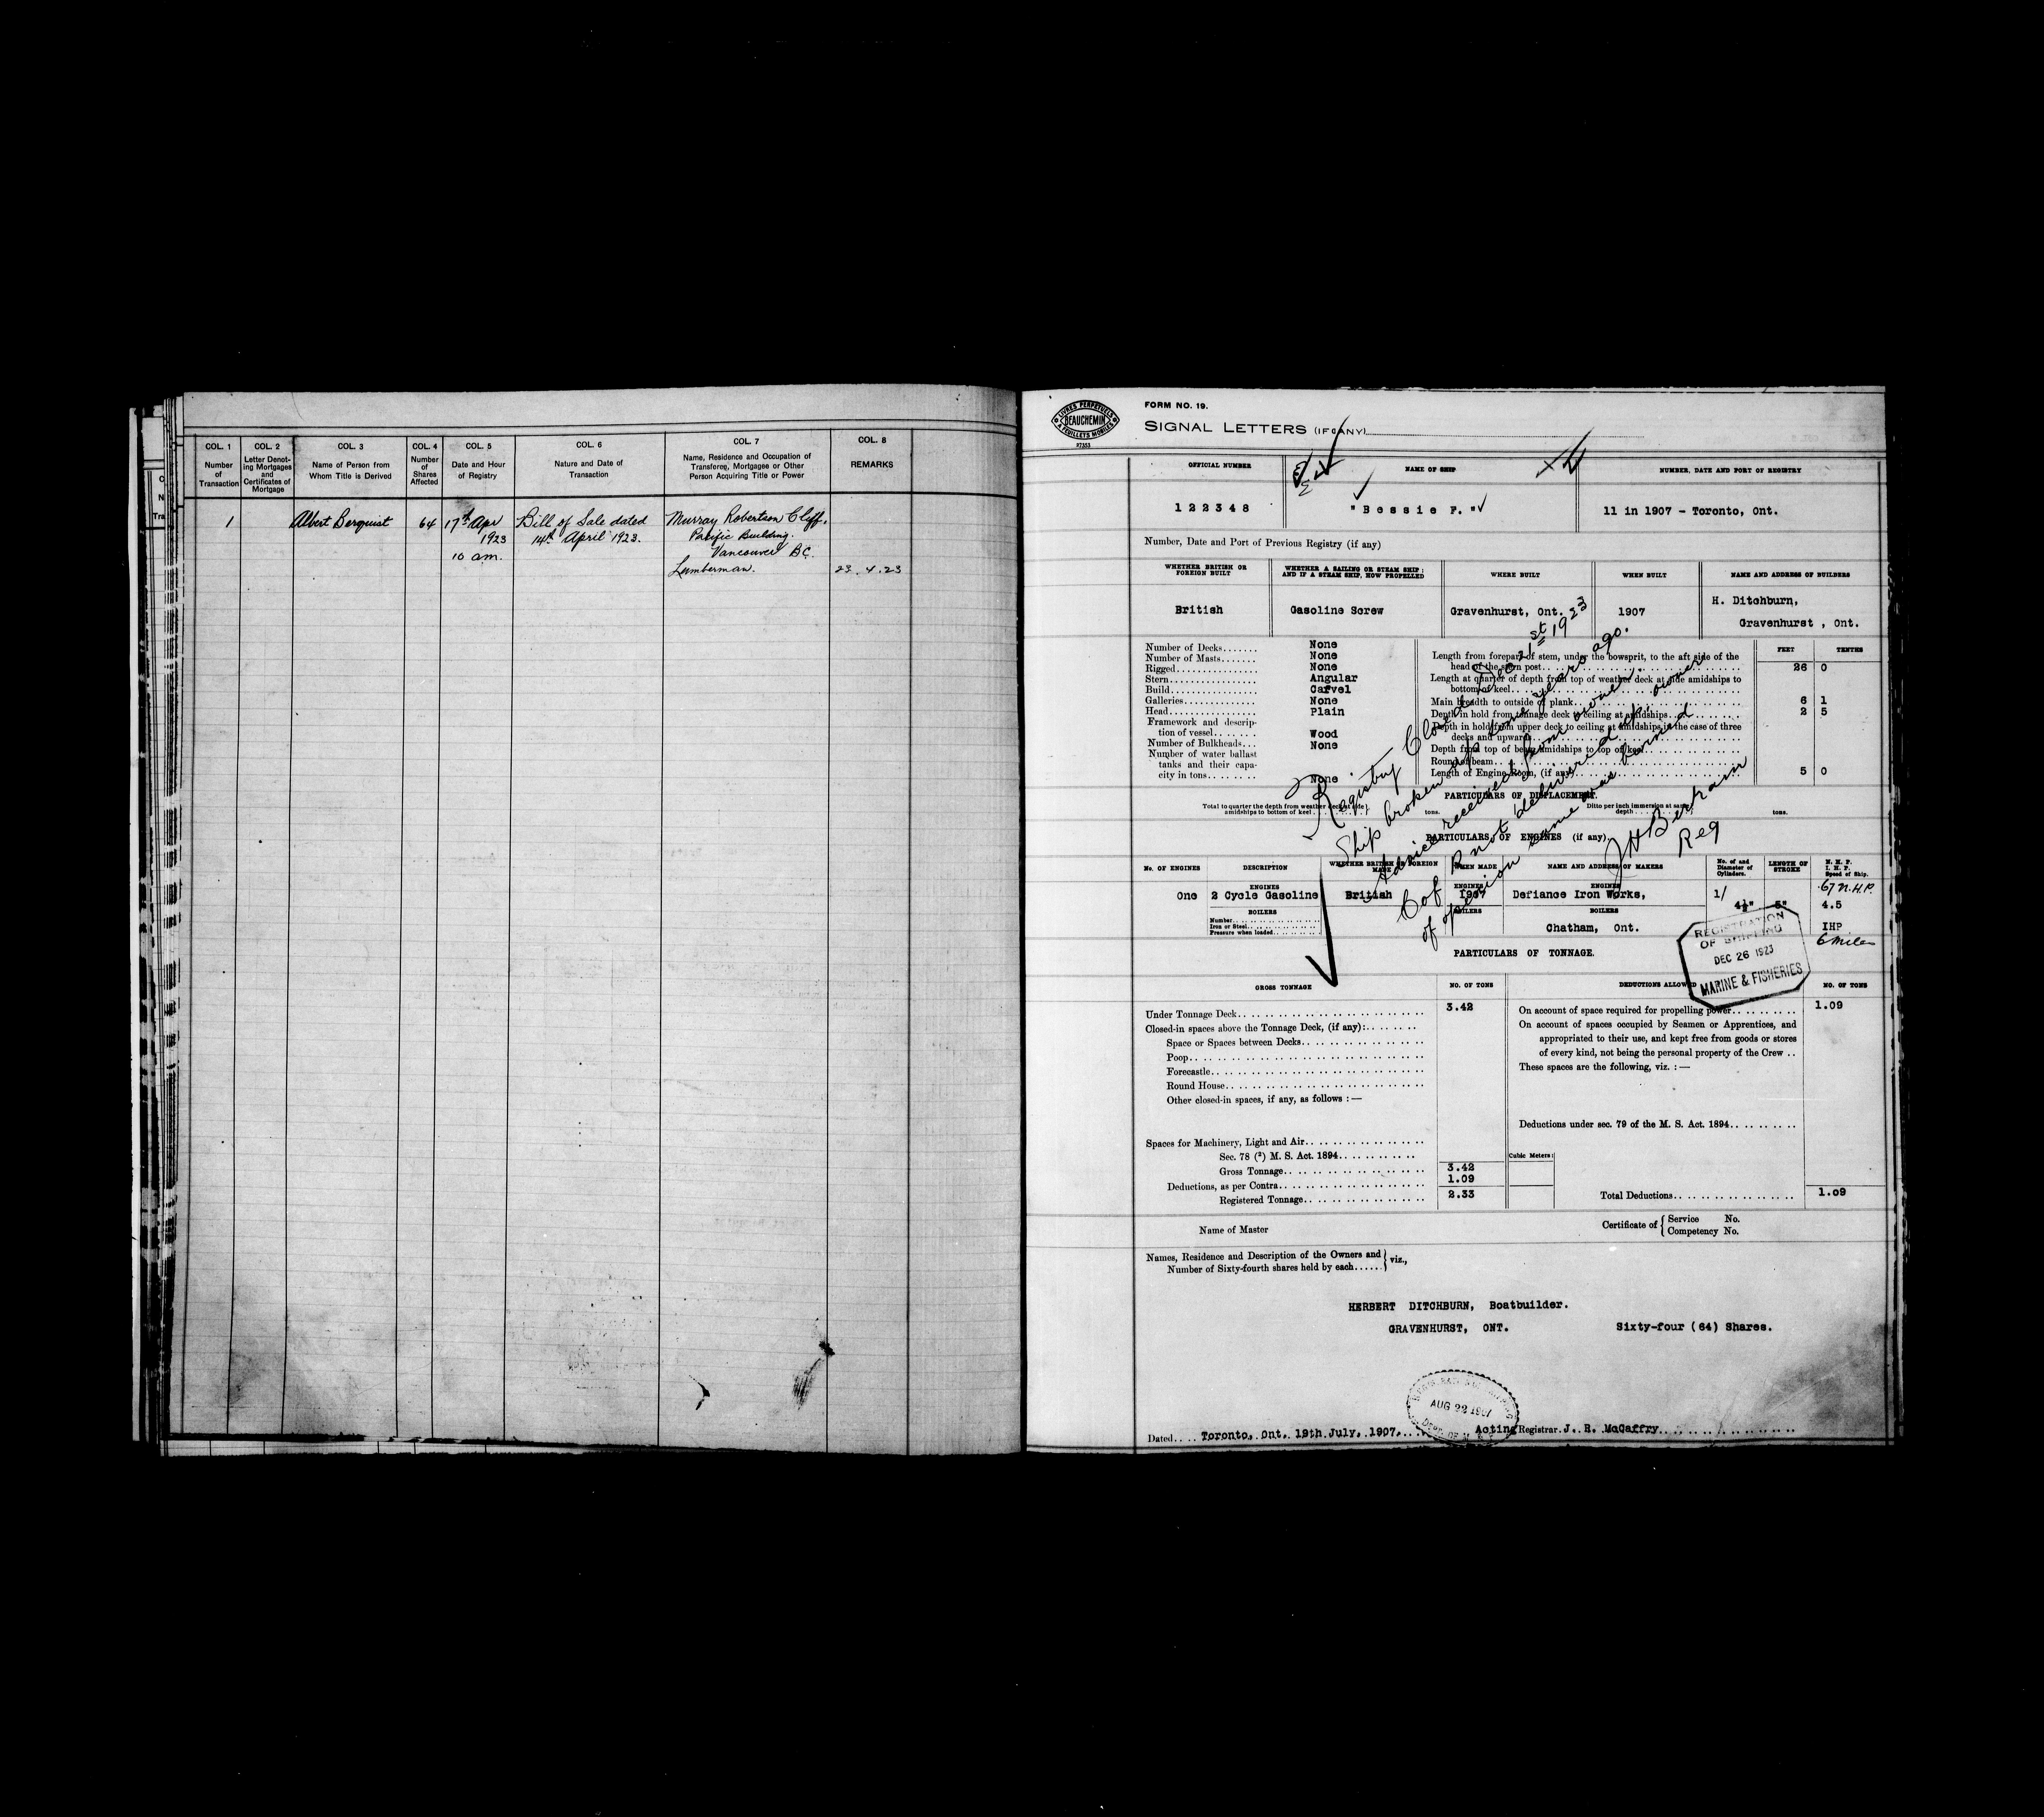 COL. 1
Number
of
Transaction
COL. 2
Letter Denot-
ing Mortgages
and
Certificates of
Mortgage
COL. 3
Name of Person from
Whom Title is Derived
COL. 4
Number
of
Shares
Affected
COL. 5
Date and Hour
of Registry
COL. 6
Nature and Date of
Transaction
COL. 7
Name, Residence and Occupation of
Transferee, Mortgagee or Other
Person Acquiring Title or Power
COL. 8
REMARKS
1 Albert Berquist 64 17th Apr Bill of Sale dated Murray Robertson Cliff.
1923 14th April 1923. Pacific Building.
10 am. Vancouver BC.
Lumberman. 23.4.23
LIVRES PERPETUELS
BEAUCHEMIN
A FEUILLETS MOBILES
27353
FORM NO. 19.
SIGNAL LETTERS (IF ANY)
OFFICIAL NUMBER NAME OF SHIP NUMBER, DATE AND PORT OF REGISTRY
122348 "Bessie F." 11 in 1907 - Toronto, Ont.
Number, Date and Port of Previous Registry (if any)
WHETHER BRITISH OR
FOREIGN BUILT
WHETHER A SAILING OR STEAM SHIP;
AND IF A STEAM SHIP, HOW PROPELLED
WHERE BUILT
WHEN BUILT
NAME AND ADDRESS OF BUILDERS
British Gasoline Screw Gravenhurst, Ont. 1907 H. Ditchburn,
Gravenhurst , Ont.
Number of Decks....... None
Number of Masts....... None
Rigged................ None
Stern................. Angular
Build................. Carvel
Galleries.............. None
Head................. Plain
Framework and descrip-
tion of vessel....... Wood
Number of Bulkheads... None
Number of water ballast
tanks and their capa-
city in tons........ None
FEET TENTHS
Length from forepart of stem, under the bowsprit, to the aft side of the
head of the stern post 26 0
Length at quarter of depth from top of weather deck at side amidships to
bottom of keel
Main breadth to outside of plank 6 1
Depth in hold from tonnage deck to ceiling at amidships 2 5
Depth in hold from upper deck to ceiling at amidships, in the case of three
decks and upwards
Depth from top of beam amidships to top of keel
Round of beam
Length of Engine Room, (if any) 5 0
Registry Closed Dec 21st 1923
Ship broken up some years ago.
Advice received from owner.
C of R not delivered up, owner
of opinion same was burned
J H Bertram
Reg
PARTICULARS OF DISPLACEMENT.
Total to quarter the depth from weather deck at side
amidships to bottom of keel tons.
Ditto per inch immersion at same
depth tons.
PARTICULARS OF ENGINES (if any)
No. OF ENGINES
DESCRIPTION
WHETHER BRITISH OR FOREIGN
MADE
WHEN MADE
NAME AND ADDRESS OF MAKERS
No. of and
Diameter of
Cylinders.
LENGTH OF
STROKE
N. H. P.
I. H. P.
Speed of Ship.
ENGINES ENGINES ENGINES
One 2 Cycle Gasoline British 1907 Defiance Iron Works, 1/ .67 N.H.P.
4½" 5" 4.5
BOILERS BOILERS BOILERS
Number
Iron or Steel
Pressure when loaded
Chatham, Ont. IHP
6 miles
REGISTRATION
OF SHIPPING
DEC 26 1923
MARINE & FISHERIES
PARTICULARS OF TONNAGE.
GROSS TONNAGE NO. OF TONS DEDUCTIONS ALLOWED NO. OF TONS
Under Tonnage Deck 3.42
Closed-in spaces above the Tonnage Deck, (if any):
Space or Spaces between Decks
Poop
Forecastle
Round House
Other closed-in spaces, if any, as follows :—
Spaces for Machinery, Light and Air
Sec. 78 (²) M. S. Act. 1894
Gross Tonnage 3.42
Deductions, as per Contra 1.09
Registered Tonnage 2.33
Cubic Meters:
On account of space required for propelling power 1.09
On account of spaces occupied by Seamen or Apprentices, and
appropriated to their use, and kept free from goods or stores
of every kind, not being the personal property of the Crew ..
These spaces are the following, viz. :—
Deductions under sec. 79 of the M. S. Act. 1894
Total Deductions 1.09
Name of Master
Certificate of { Service No.
Competency No.
Names, Residence and Description of the Owners and } viz.,
Number of Sixty-fourth shares held by each......
HERBERT DITCHBURN, Boatbuilder.
GRAVENHURST, ONT. Sixty-four (64) Shares.
AUG 22 1907
Dated.... Toronto, Ont. 19th July, 1907. Acting Registrar. J. R. McCaffry